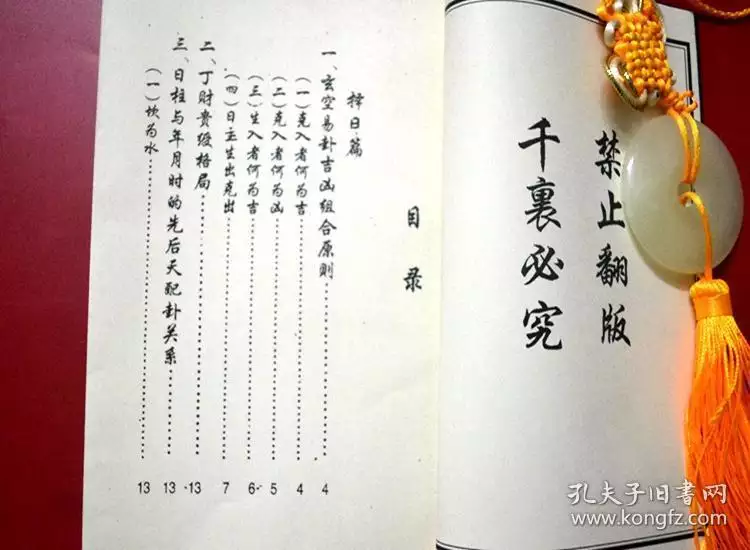 禁止翻版
千裏必究
目录
择日篇
一、玄空易卦吉凶组合原则……4
(一)克入者何为吉……4
(二)克入者何为凶……5
(三)生入者何为吉……6
(四)日主生出克出……7
二、丁财贵缎格局……13
三、日柱与年月时的先后天配卦关系……13
(一)坎为水……13
孔夫子旧书网
www.kongfz.com